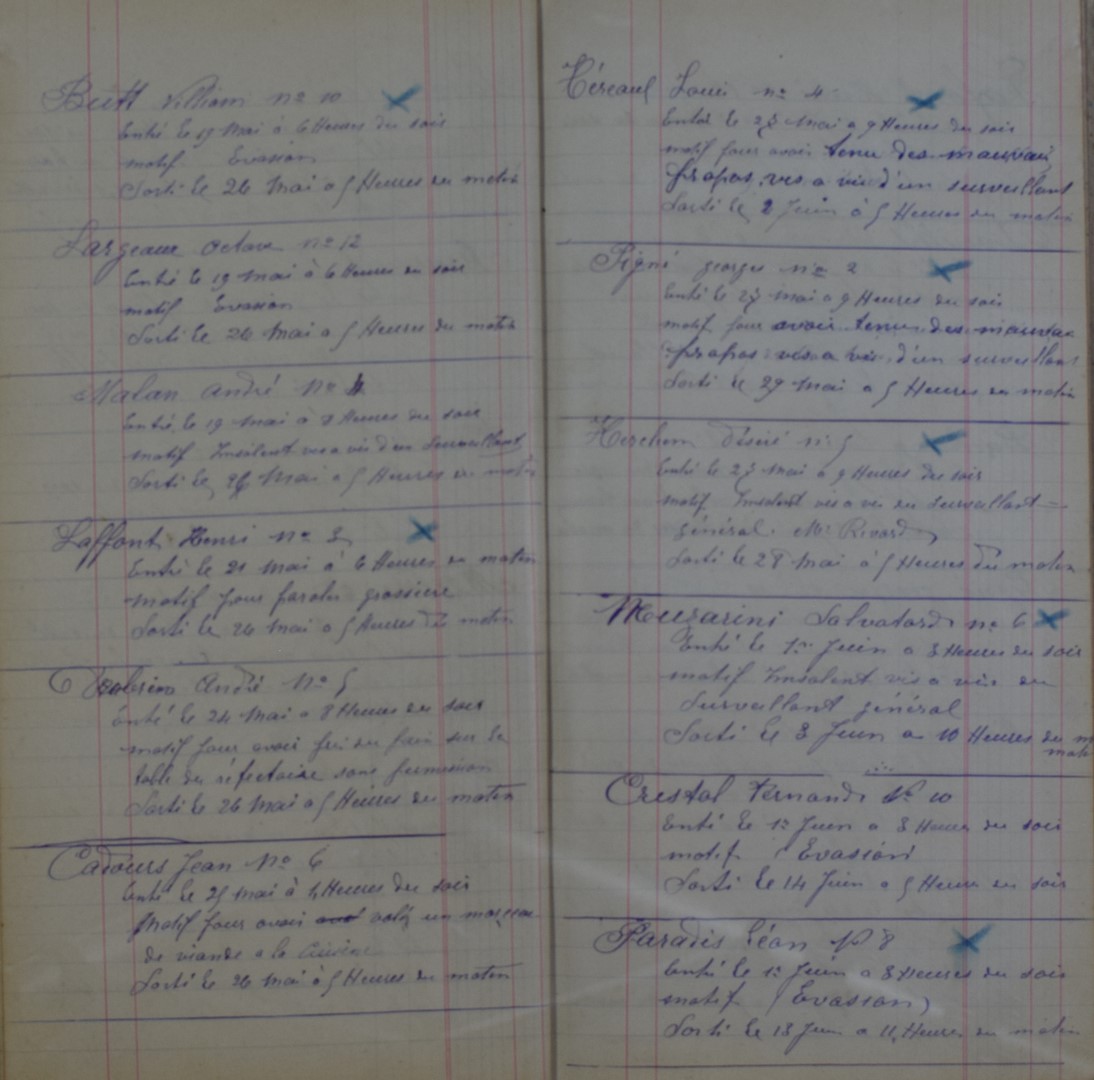 Butt William no 10
Entré le 19 Mai à 6 Heures du soir
motif Evasion
Sorti le 26 Mai a 5 Heures du matin
Largeaux Octave no 12
Entré le 19 mai à 6 Heures du soir
motif Evasion
Sorti le 26 Mai a 5 Heures du matin
Malan André No 4
Entré le 19 mai a 8 Heures du soir
motif Insolent vis a vis d'un Surveillant
Sorti le Mai a 5 Heures du matin
Laffont Henri no 3
Entré le 21 Mai à 6 Heures du matin
motif pour paroles grossiere
Sorti le 26 mai a 5 Heures du matin
André No 5
Entré le 24 Mai a 8 Heures du soir
motif pour avoir pri du pain sur la
table du réfectoire sans permission
Sorti le 26 Mai a 5 Heures du matin
Cadours Jean No 6
Entré le 25 mai à 4 Heures du soir
Motif pour avoir volé un morceau
de viande a la Cuisine
Sorti le 26 Mai à 5 Heures du matin
Louis no 4
Entré le 27 Mai a 9 Heures du soir
motif pour avoir tenu des mauvais
propos vis a vis d'un surveillant
Sorti le 2 Juin à 5 Heures du matin
Pigné georges no 2
Entré le 27 mai a 9 Heures du soir
motif pour avoir tenu des mauvax
propos vis a vis d'un surveillant
Sorti le 29 Mai a 5 Heures du matin
Désiré no 5
Entré le 27 Mai a 9 Heures du soir
motif Insolent vis a vis du Surveillant
général Mr Rivard
Sorti le 28 Mai à 5 Heures du matin
Salvatord no 6
Entré le 1er Juin a 8 Heures du soir
motif Insolent vis a vis du
Surveillant général
Sorti le 8 Juin a 10 Heures du m
mati
Crestol Fernand No 10
Entré le 1er Juin a 8 Heures du soir
motif (Evasion)
Sorti le 14 Juin a 5 Heures du soir
Paradis Léon No 8
Entré le 1er Juin a 8 Heures du soir
motif (Evasion)
Sorti le 18 Juin a 11 Heures du matin